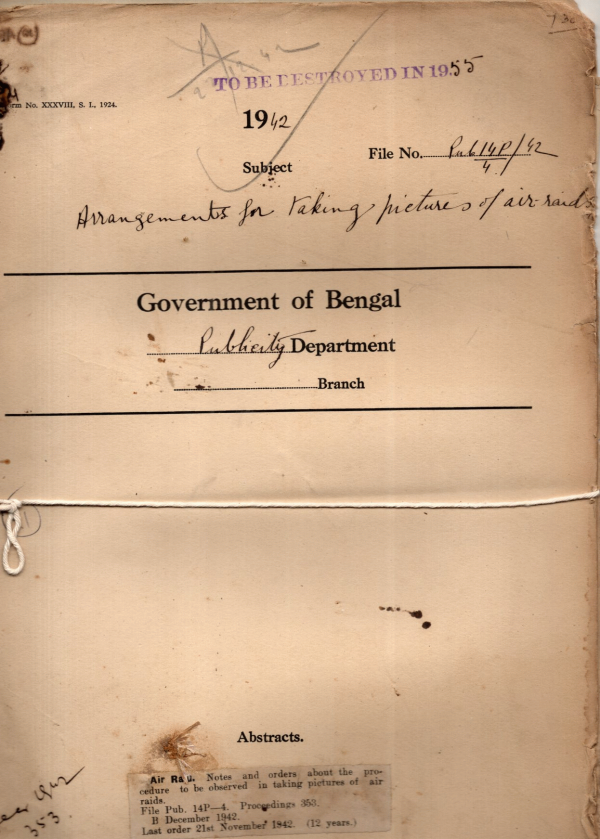 TO BE DESTROYED IN 1955
orm No. XXXVIII, S. I., 1924.
1942
File No. Pub 14P/42
4
Subject
Arrangements for taking pictures of air-raids
Government of Bengal
Publicity Department
Branch
Abstracts.
Air Raid. Notes and orders about the pro-
cedure to be observed in taking pictures of air
raids.
File Pub. 14P—4. Proceedings 353.
B December 1942.
Last order 21st November 1942. (12 years.)
353